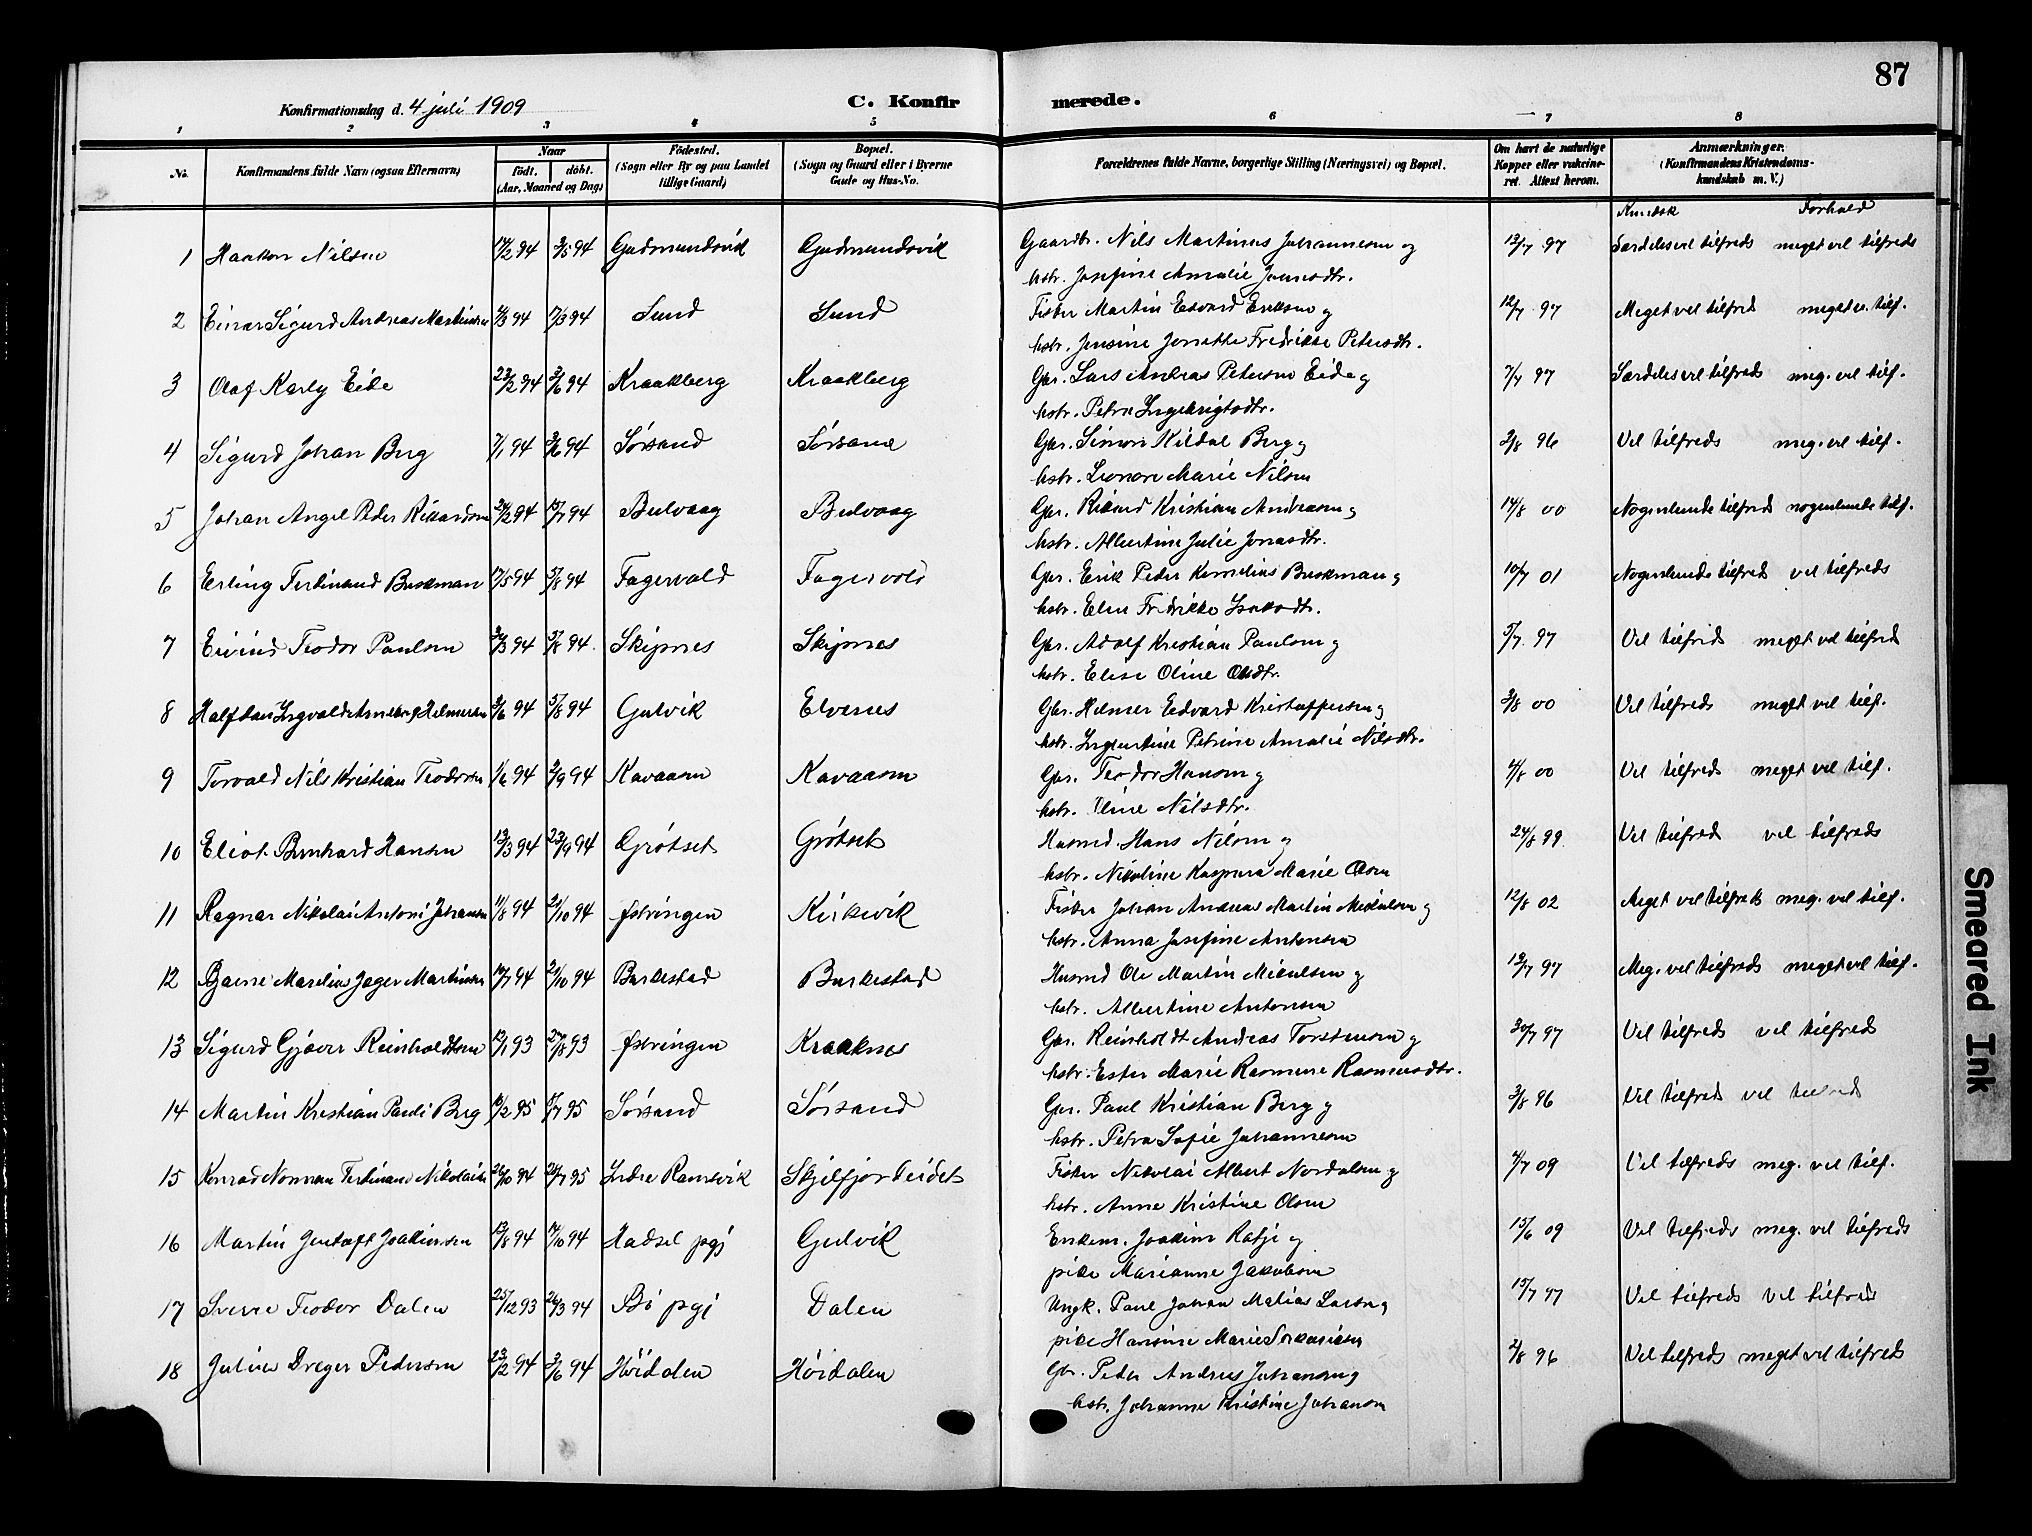 87
Konfirmationsdag d. 4 juli 1909
C. Konfirmerede.
1 2 3 4 5 6 7 8
No. Konfirmandens fulde Navn (ogsaa Efternavn) Naar født. døbt. (Aar, Maaned og Dag) Fødested. (Sogn eller By og paa Landet tillige Gaard) Bopæl. (Sogn og Gaard eller i Byerne Gade og Hus-No. Forældrenes fulde Navne, borgerlige Stilling (Næringsvei) og Bopæl. Om havt de naturlige Kopper eller vaccineret. Attest herom. Anmærkninger. (Konfirmandens Kristendomskundskab m. V.)
Kundsk Forhold
1 Haakon Nilsen 17/2 94 3/5 94 Gudmundsvik Gudmundsvik Gaardbr. Nils Martinus Johannesen og 12/7 97 Særdeles vel tilfreds meget vel tilfreds
hstr. Josefine Amalie Jensdtr.
2 Einar Sigurd Andreas Martinsen 94 94 Sund Sund Fisker Martin Edvard Eriksen og 12/7 97 Meget vel tilfred meget v. tilf.
hstr. Jensine Jonette Fredrikke Petersdtr.
3 Olaf Karly Eide 23/2 94 3/6 94 Kraakberg Kraakberg Gbr. Lars Andreas Petersen Eide og 7/7 97 Særdeles vel tilfreds meg. vel tilf.
hstr. Petra Ingebrigtsdtr.
4 Sigurd Johan Berg 7/1 94 3/6 94 Sørsand Sørsand Gbr. Simon Kildal Berg og 3/8 96 Vel tilfreds meg. vel tilf.
hstr. Leonore Marie Nilsen
5 Johan Angel Peder Rikardsen 94 15/7 94 Bulvaag Bulvaag Gbr. Rikard Kristian Andreasen og 14/8 00 Nogenlunde tilfreds nogenlunde tilf.
hstr. Albertine Julie Jonasdtr.
6 Erling Ferdinand Buskman 17/5 94 5/8 94 Fagervold Fagervold Gbr. Erik Peder Kornelius Buskman og 10/7 01 Nogenlunde tilfreds vel tilfreds
hstr. Elen Fredrikke Isaksdtr.
7 Eivind Teodor Paulsen 94 5/8 94 Skipnes Skipnes Gbr. Adolf Kristian Paulsen og 5/7 97 Vel tilfrids meget vel tilfred
hstr. Elise Oline Olsdtr.
8 Halfdan Ingvald Helmersen 3/6 94 5/8 94 Gulvik Elvenes Gbr. Helmer Edvard Kristoffersen og 3/8 00 Vel tilfreds meget vel tilf.
hstr. Ingentine Petrine Amalie Nilsdtr.
9 Torvald Nils Kristian Teodorsen 1/6 94 2/9 94 Kavaasen Kavaasen Gbr. Teodor Hansen og 4/8 00 Vel tilfreds meget vel tilf.
hstr. Oline Nilsdtr.
10 Eliot Bernhard Hansen 13/3 94 23/9 94 Grötset Grötset Husmd. Hans Nilsen og 24/8 99 Vel tilfreds vel tilfreds
hstr. Nikoline Kaspara Marie Olsen
11 Ragnar Nikolai Antoni Johansen 11/8 94 21/10 94 Kirkevik Fisker Johan Andreas Martin Mikalsen og 12/8 02 Meget vel tilfreds meg. vel tilf.
hstr. Anna Josefine Antonsen
12 Bjarne Marelius Jager Martinsen 10/7 94 21/10 94 Barkestad Barkestad Husmd Ole Martin Mikalsen og 12/7 97 Meg. vel tilfreds meget vel tilf.
hstr. Albertine Antonsen
13 Sigurd Gjæver Reinholdtsen 12/1 93 27/8 93 Kraaknes Gbr. Reinholdt Andreas Torstensen og 30/7 97 Vel tilfreds vel tilfreds
hstr. Ester Marie Rasmine Rasmusdtr.
14 Martin Kristian Pauli Berg 10/2 95 7/7 95 Sørsand Sørsand Gbr. Paul Kristian Berg og 3/8 96 Vel tilfreds vel tilfreds
hstr. Petra Sofie Johannesen
15 Konrad Norman Ferdinand Nikolaisen 26/10 94 28/7 95 Indre Ramsvik Skjelfjordeidet Fisker Nikolai Albert Nordalsen og 4/7 09 Vel tilfreds meg. vel tilf.
hstr. Anne Kristine Olsen
16 Martin Gustaft Joakimsen 13/8 94 7/10 94 Hadsel pgj Gulvik Enkem. Joakim Ratji og 15/6 09 Vel tilfreds meg. vel tilfreds
pike Marianne Jakobsen
17 Sverre Teodor Dalen 25/12 93 26/3 94 Bö pgj Dalen Ungk. Paul Johan Matias Larsen og 15/7 97 Vel tilfreds Vel tilfreds
pike Hansine Marie
18 Julius Dreyer Pedersen 23/2 94 3/6 94 Höidalen Höidalen Gbr. Peder Andreas Johansen og 2/8 96 Vel tilfreds meget vel tilfreds
hstr. Johanne Kristine Johansen
Smeared Ink